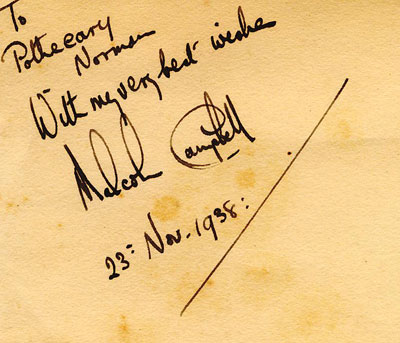 To
Pothecary
Norman
With my very best wishes
Malcolm Campbell
23: Nov. 1938: